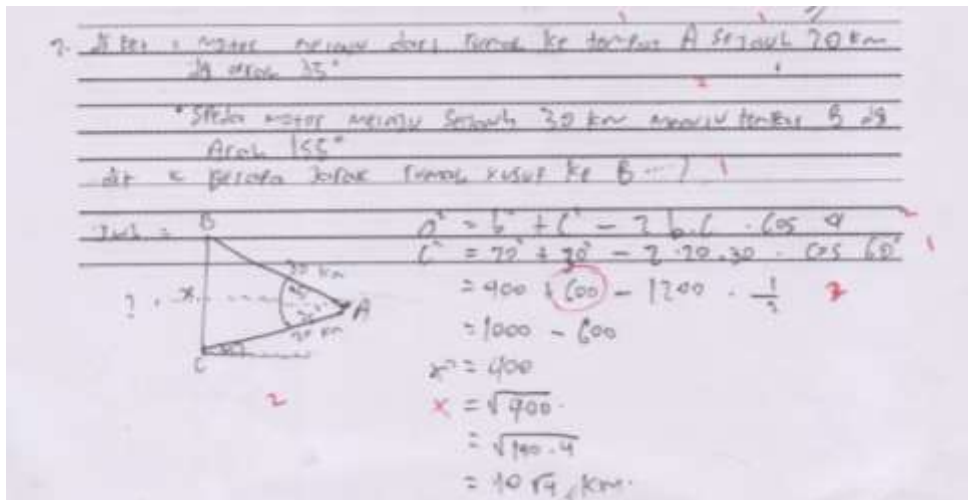 2. diket : motor melaju dari rumah ke tempat A sejauh 20 km
dg arah 35°
• Speda motor melaju sejauh 30 km menuju tempat B dg
Arah 155°
dit = berapa jarak rumah Yusuf ke B ... ?
Jwb =
B
a² = b² + c² - 2 b.c . cos a
c² = 20² + 30² - 2.20.30 . cos 60°
30 km
= 400 + 600 - 1200 . 1/2
? x
A
20 km
= 1000 - 600
C
x² = 400
x = √400.
= √100.4
= 10 √4 km.